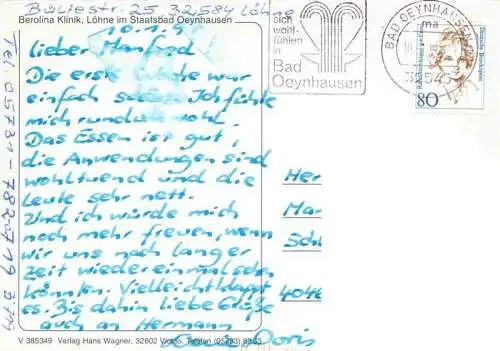 Bültestr. 25 32584 Löhne
Berolina Klinik, Löhne im Staatsbad Oeynhausen
10.1.9
Lieber Manfred
Die erste Woche war
einfach schön. Ich fühle
mich rundum wohl.
Das Essen ist gut,
die Anwendungen sind
wohltuend und die
Leute sehr nett.
Und ich würde mich
noch mehr freuen, wenn
wir uns nach langer
Zeit wieder einmal sehen
könnten. Vielleicht klappt
es. Bis dahin liebe Grüße
auch an Hermann
Doris
V 385349 Verlag Hans Wagner, 32602 Vlotho, Telefon (05733)
Tel. 05731-7820719
sich
wohl-
fühlen
in
Bad
Oeynhausen
BAD OEYNHAUSEN
ma
80
Deutsche Bundespost
Her
Ma
Schl
404